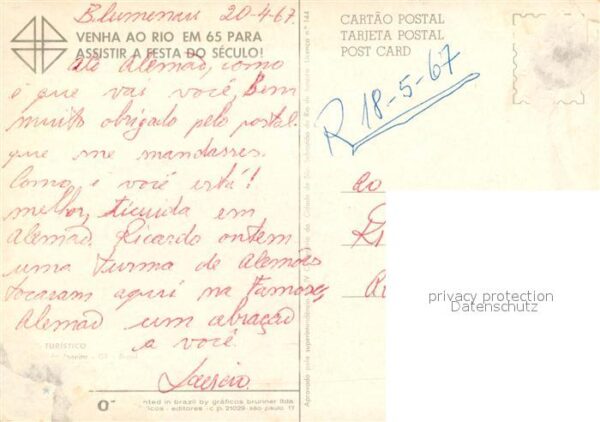 Blumenau 20-4-67
VENHA AO RIO EM 65 PARA
ASSISTIR A FESTA DO SÉCULO!
Alemão, como
é que vai você, bem
muito obrigado pelo postal
que me mandasses.
Como é você está!
melhor, em
Alemão. Ricardo ontem
uma turma de Alemões
tocaram aqui na
Alemão um abração
a você
TURÍSTICO
nted in brazil by gráficos brunner ltda
icos - editores - c p. 21029 são paulo 11
CARTÃO POSTAL
TARJETA POSTAL
POST CARD
R 18-5-67
ao
privacy protection
Datenschutz